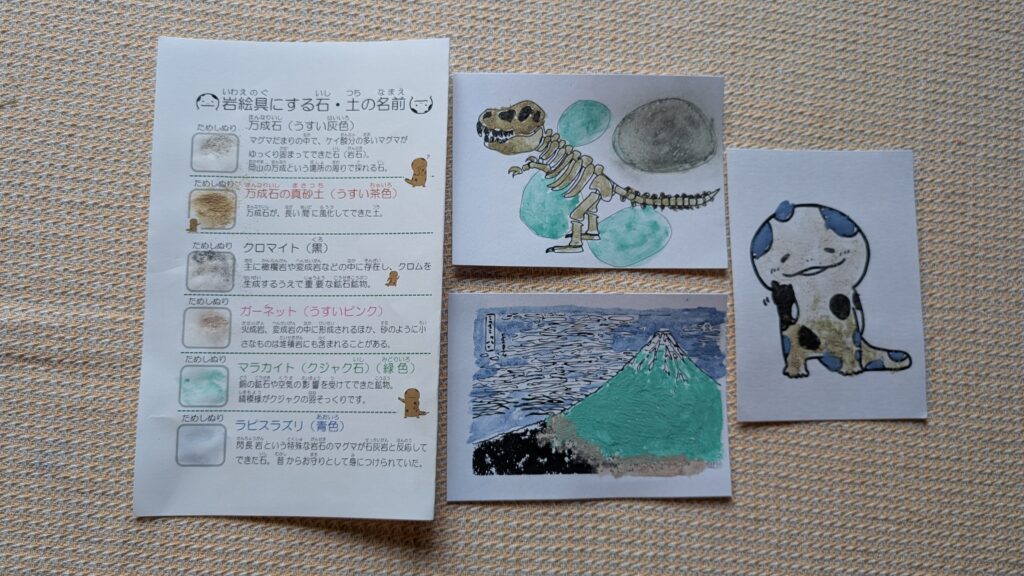 いわえのぐ いし つち なまえ
岩絵具にする石・土の名前
ためしぬり
まんなりいし はいいろ
万成石（うすい灰色）
マグマだまりの中で、ケイ酸分の多いマグマが
ゆっくり固まってできた石（岩石）。
岡山の万成という場所の周りで採れる石。
ためしぬり
まんなりいし まさつち ちゃいろ
万成石の真砂土（うすい茶色）
万成石が、長い間に風化してできた土。
ためしぬり
くろ
クロマイト（黒）
主に橄欖岩や変成岩などの中に存在し、クロムを
生成するうえで重要な鉱石鉱物。
ためしぬり
ガーネット（うすいピンク）
火成岩、変成岩の中に形成されるほか、砂のように小
さなものは堆積岩にも含まれることがある。
ためしぬり
いし みどりいろ
マラカイト（クジャク石）（緑色）
銅の鉱石や空気の影響を受けてできた鉱物。
縞模様がクジャクの羽そっくりです。
ためしぬり
あおいろ
ラピスラズリ（青色）
閃長岩という特殊な岩石のマグマが石灰岩と反応して
できた石。昔からお守りとして身につけられていた。